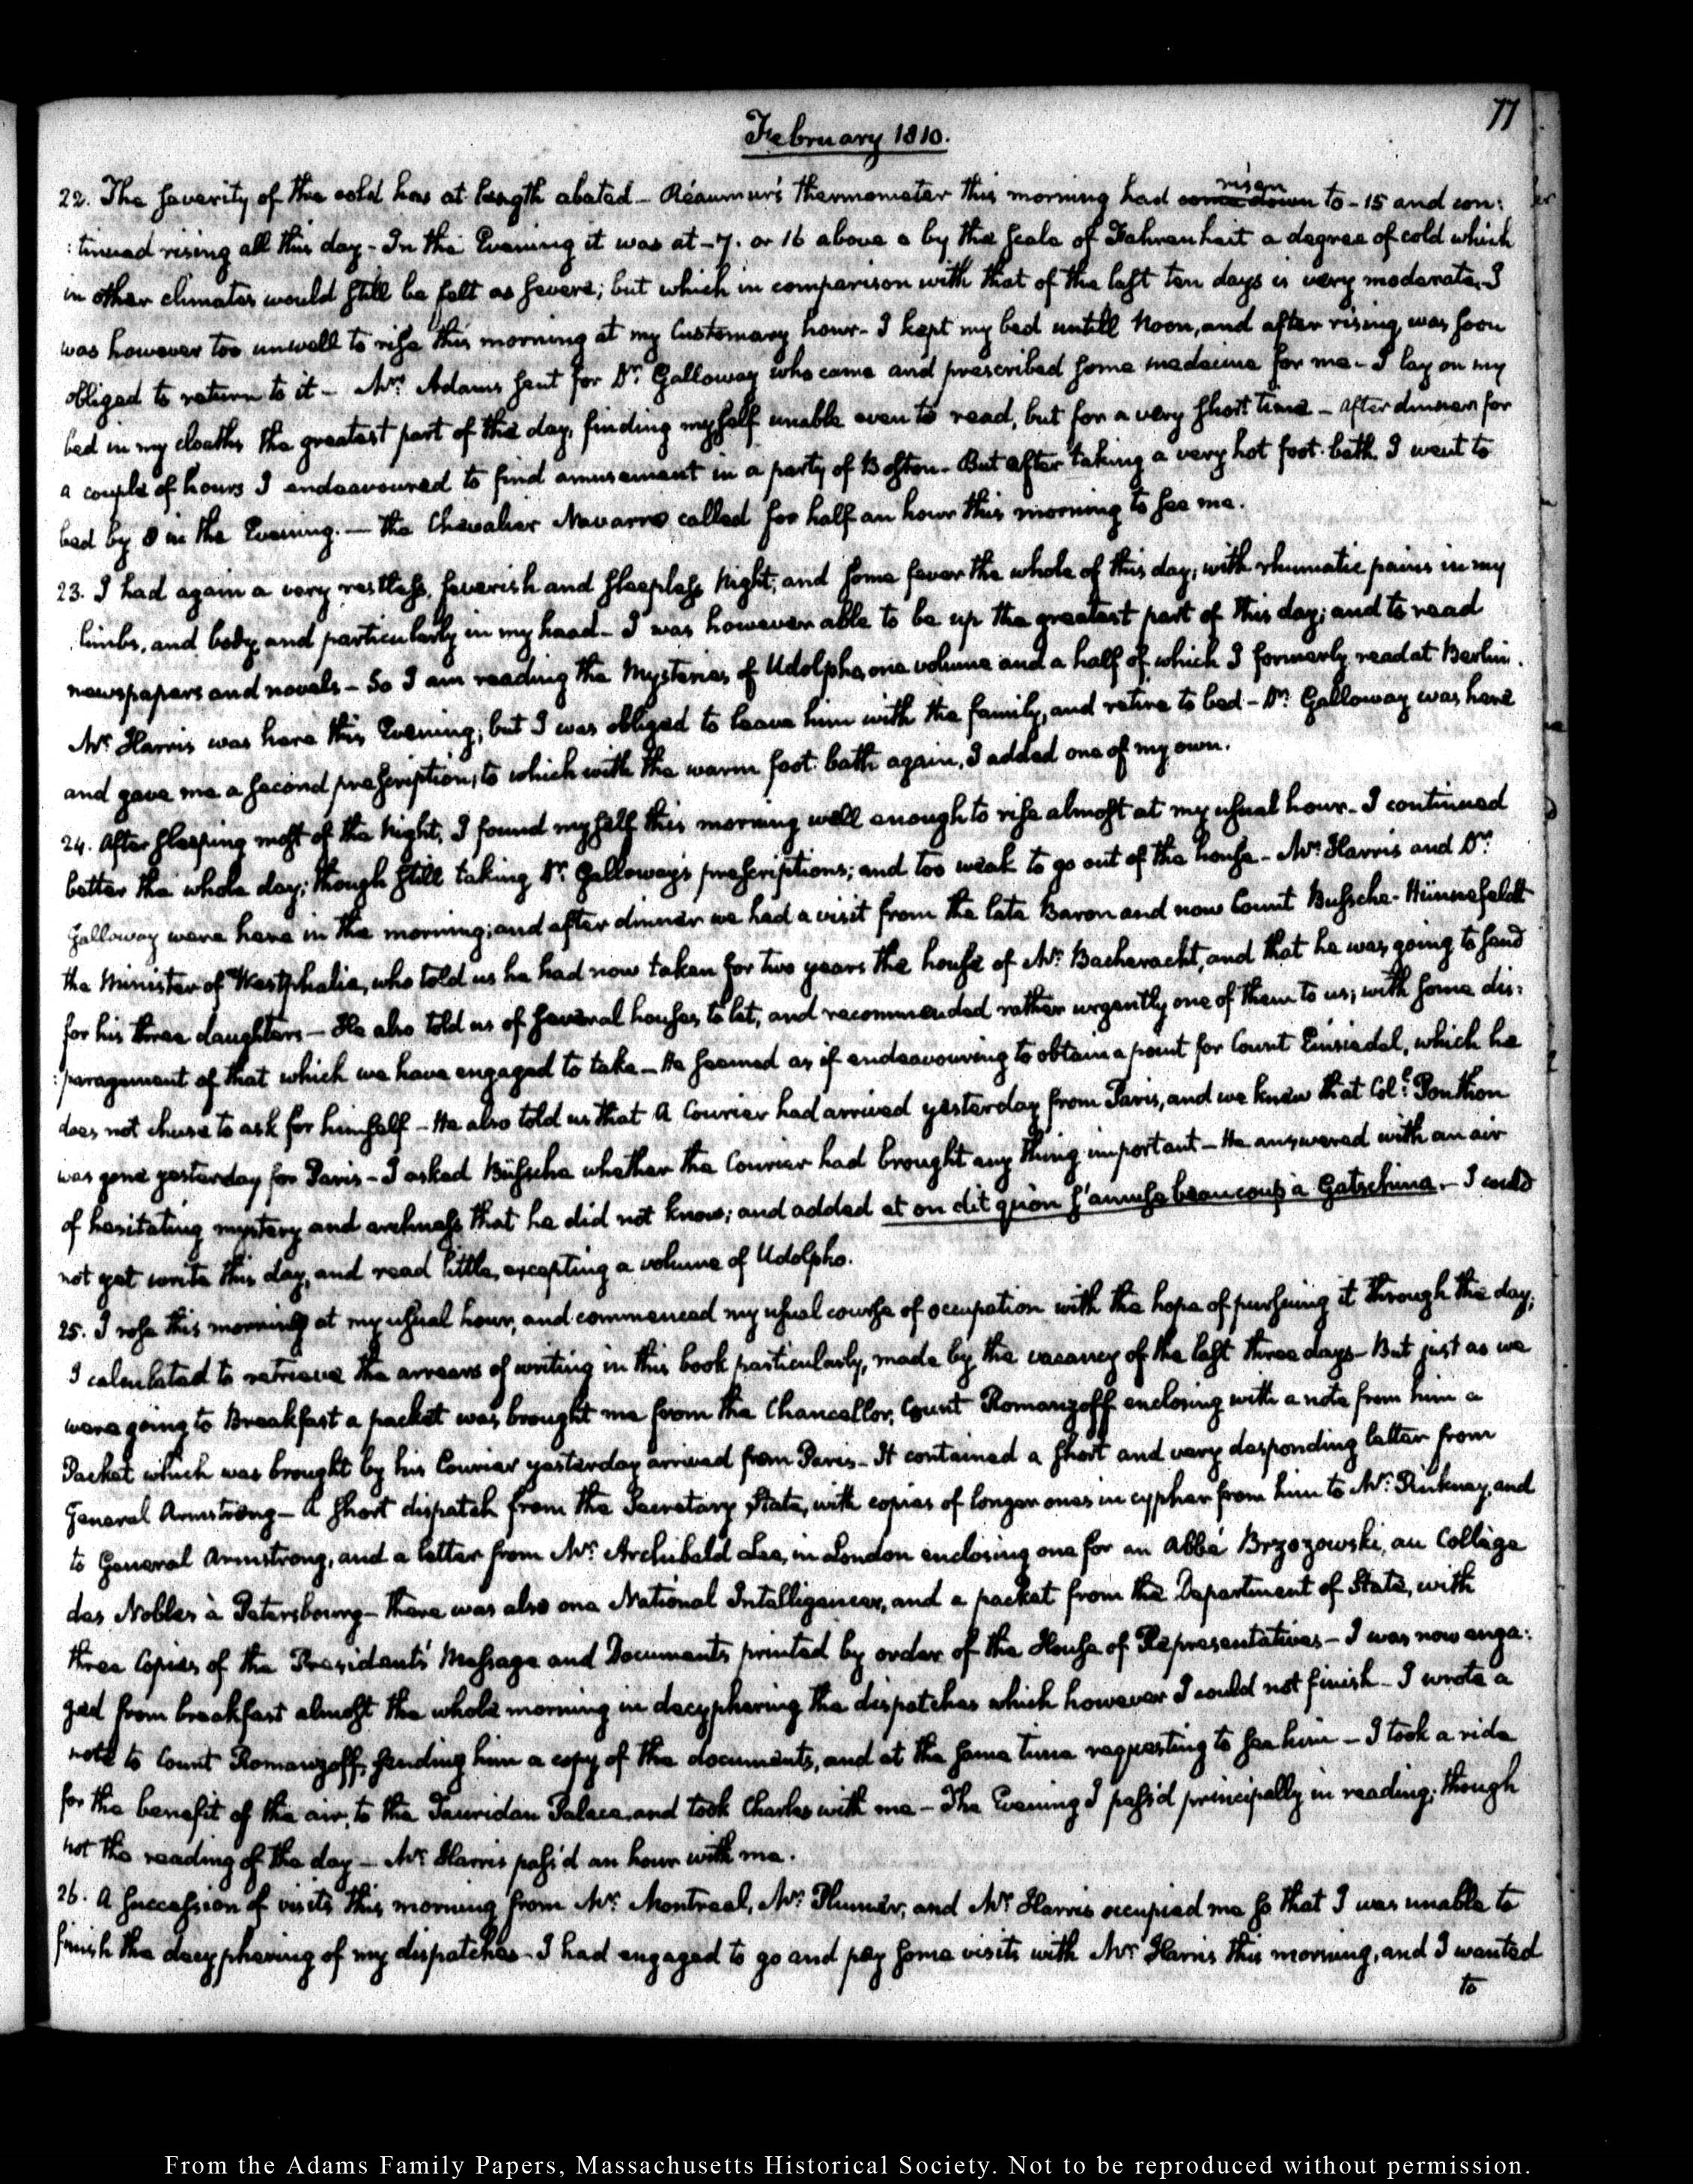 77
February 1810.
22. The severity of the cold has at length abated - Réaumur's thermometer this morning had come down risen to - 15 and con:
:tinued rising all this day - In the Evening it was at - 7. or 16 above 0 by the scale of Fahrenheit a degree of cold which
in other climates would still be felt as severe; but which in comparison with that of the last ten days is very moderate. I
was however too unwell to rise this morning at my Customary hour - I kept my bed untill Noon, and after rising was soon
obliged to return to it - Mrs. Adams sent for Dr. Galloway who came and prescribed some medecine for me - I lay on my
bed in my cloaths the greatest part of the day, finding myself unable even to read, but for a very short time - after dinner for
a couple of hours I endeavoured to find amusement in a party of Boston - But after taking a very hot foot-bath I went to
bed by 8 in the Evening. — The Chevalier Navarro called for half an hour this morning to see me.
23. I had again a very restless, feverish and sleepless Night, and some fever the whole of this day, with rhumatic pains in my
limbs, and body, and particularly in my head - I was however able to be up the greatest part of this day; and to read
newspapers and novels - So I am reading the Mysteries of Udolpho, one volume and a half of which I formerly read at Berlin.
Mr. Harris was here this Evening; but I was obliged to leave him with the family, and retire to bed - Dr. Galloway was here
and gave me a second prescription, to which with the warm foot-bath again, I added one of my own.
24. After sleeping most of the Night, I found myself this morning well enough to rise almost at my usual hour - I continued
better the whole day; though still taking Dr. Galloway's prescriptions; and too weak to go out of the house - Mr. Harris and Dr.
Galloway were here in the morning; and after dinner we had a visit from the late Baron and now Count Bussche-Hünnefeldt
the Minister of Westphalia, who told us he had now taken for two years the house of Mr. Bacheracht, and that he was going to send
for his three daughters - He also told us of several houses to let, and recommended rather urgently one of them to us; with some dis:
:paragement of that which we have engaged to take - He seemed as if endeavouring to obtain a point for Count Einsiedel, which he
does not chuse to ask for himself - He also told us that A Courier had arrived yesterday from Paris, and we knew that Coll. Ponthon
was gone yesterday for Paris - I asked Büssche whether the Courier had brought any thing important - He answered with an air
of hesitating mystery and archness that he did not know; and added et on dit qu'on s'amuse beaucoup à Gatschina. - I could
not yet write this day, and read little, excepting a volume of Udolpho.
25. I rose this morning at my usual hour, and commenced my usual course of occupation with the hope of pursuing it through the day;
I calculated to retrieve the arrears of writing in this book particularly, made by the vacancy of the last three days - But just as we
were going to Breakfast a packet was brought me from the Chancellor, Count Romanzoff enclosing with a note from him a
Packet which was brought by his Courier yesterday arrived from Paris - It contained a short and very desponding letter from
General Armstrong - A short dispatch from the Secretary State, with copies of longer ones in cypher from him to Mr. Pinkney, and
to General Armstrong, and a letter from Mr. Archibald Lee, in London enclosing one for an Abbé Brzozowski, au Collège
des Nobles à Petersbourg - There was also one National Intelligencer, and a packet from the Department of State, with
three Copies of the President's Message and Documents printed by order of the House of Representatives - I was now enga:
ged from breakfast almost the whole morning in decyphering the dispatches which however I could not finish - I wrote a
note to Count Romanzoff, sending him a copy of the documents, and at the same time requesting to see him - I took a ride
for the benefit of the air, to the Tauridan Palace, and took Charles with me - The Evening I pass'd principally in reading; though
not the reading of the day - Mr. Harris pass'd an hour with me.
26. A succession of visits this morning from Mr. Montreal, Mr. Plummer, and Mr. Harris occupied me so that I was unable to
finish the decyphering of my dispatches - I had engaged to go and pay some visits with Mr. Harris this morning, and I wanted
to
From the Adams Family Papers, Massachusetts Historical Society. Not to be reproduced without permission.